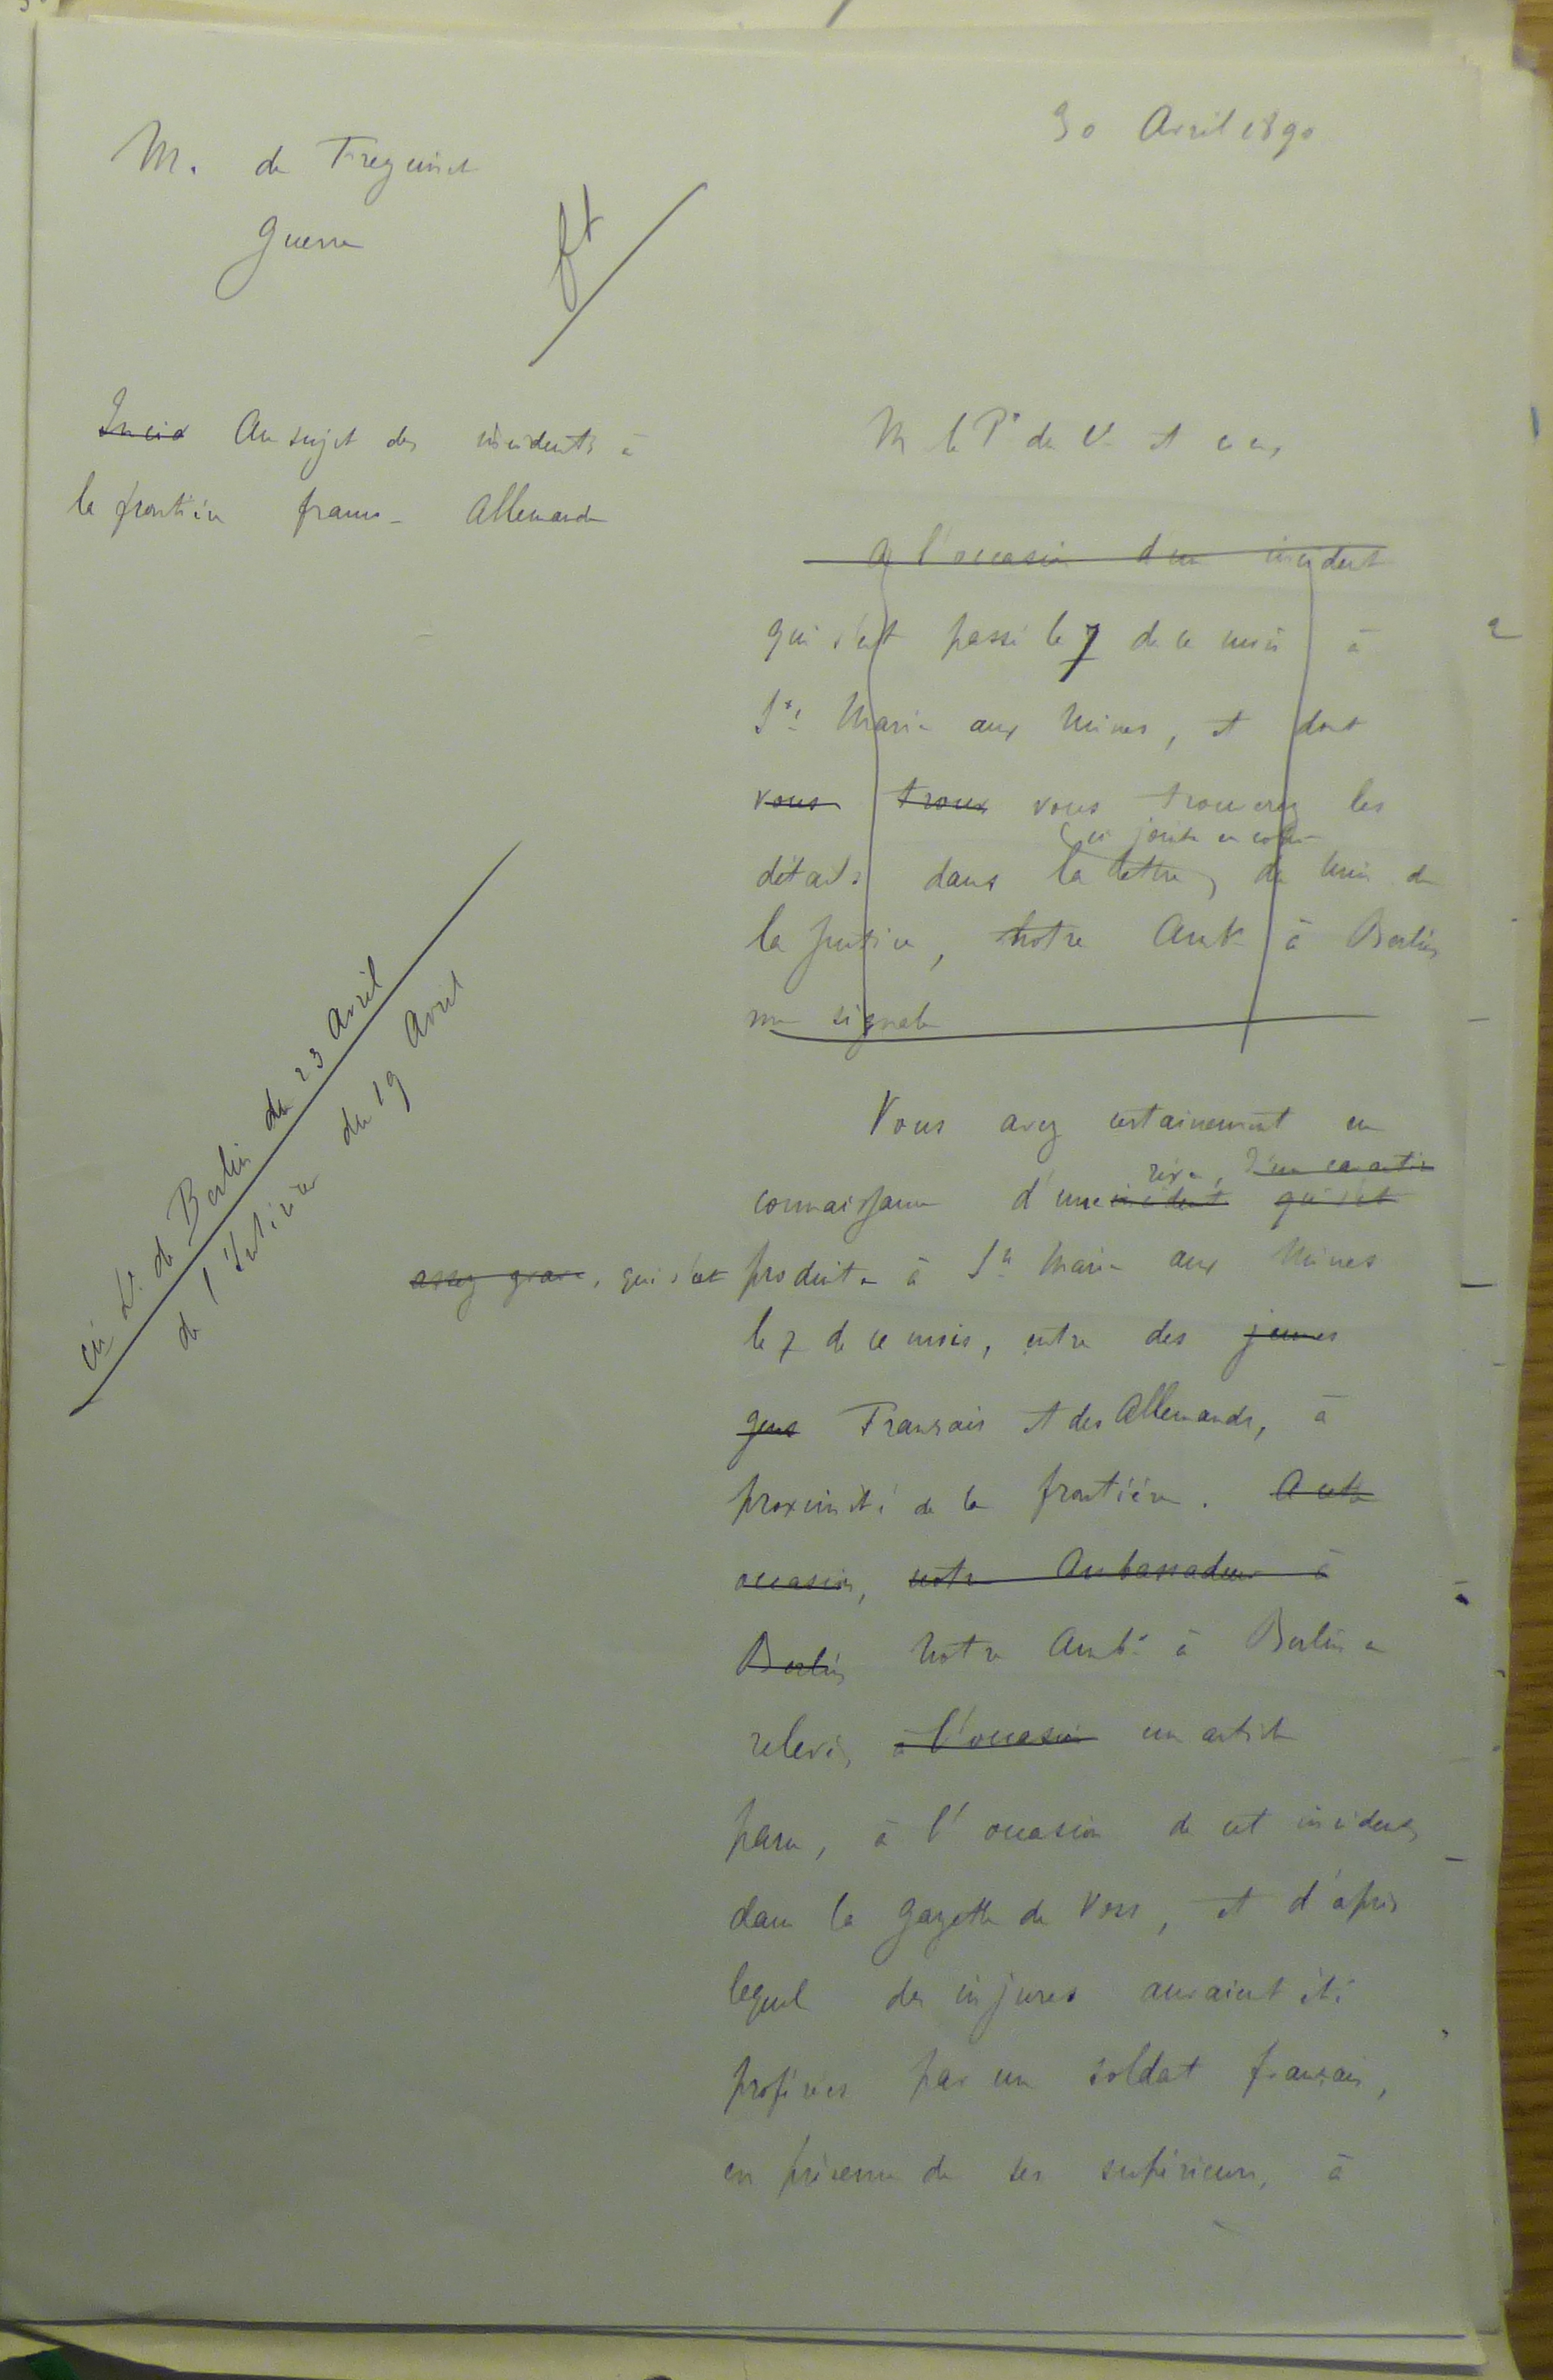 30 Avril 1890
M. de Freycinet
Guerre
Incid Au sujet des incidents à
la frontière franco-Allemande
M le P^t du C^l et
A l'occasion d'un incident
qui s'est passé le 7 de ce mois à
S^te Marie aux Mines, et dont
vous trouv vous trouverez les
ci jointe en copie
détails dans la lettre, du Min. de
la Justice, notre Amb^r à Berlin
me signale
Vous avez certainement eu
rixe, d'un caractère
connaissance d'une incident qui s'est
assez grave, qui s'est produite à S^te Marie aux Mines
le 7 de ce mois, entre des jeunes
gens Français et des Allemands, à
proximité de la frontière. A cette
occasion, notre Ambassadeur à
Berlin Notre Amb^r à Berlin a
relevé, à l'occasion un article
paru, à l'occasion de cet incident,
dans la Gazette de Voss, et d'après
lequel des injures auraient été
proférées par un soldat français,
en présence de ses supérieurs, à
de Berlin du 23 Avril
de l'Intérieur du 19 Avril